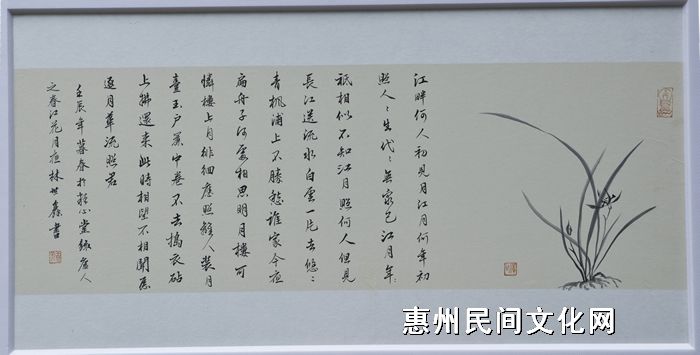 江畔何人初見月江月何年初
照人人生代代無窮已江月年年
祇相似不知江月照何人但見
長江送流水白雲一片去悠悠
青楓浦上不勝愁誰家今夜
扁舟子何處相思明月樓可
憐樓上月徘徊應照離人裝月
臺玉户簾中卷不去搗衣砧
上拂還來此時相望不相聞愿
逐月華流照君
壬辰年暮春於 心堂 唐人
之春江花月夜林世 書
惠州民间文化网